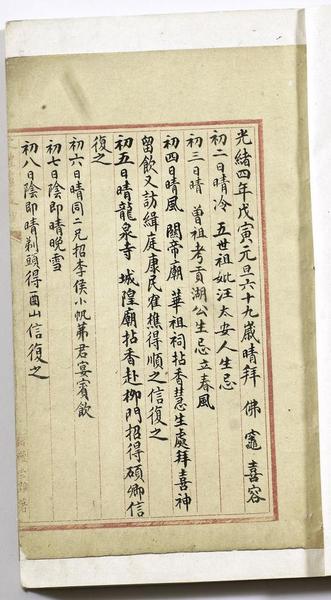 光緒四年戊寅元旦六十九歲晴拜　佛　竈　喜容
初二日晴冷　五世祖妣汪太安人生忌
初三日晴　曾祖考貢湖公生忌立春風
初四日晴風　關帝廟　華祖祠拈香慧生處拜喜神
留飲又訪緝庭康民雀樵得順之信復之
初五日晴龍泉寺　城隍廟拈香赴柳門招得碩卿信
復之
初六日晴同二兄招李侯小帆弟君宴賓飲
初七日陰即晴晚雪
初八日陰即晴剃頭得酉山信復之